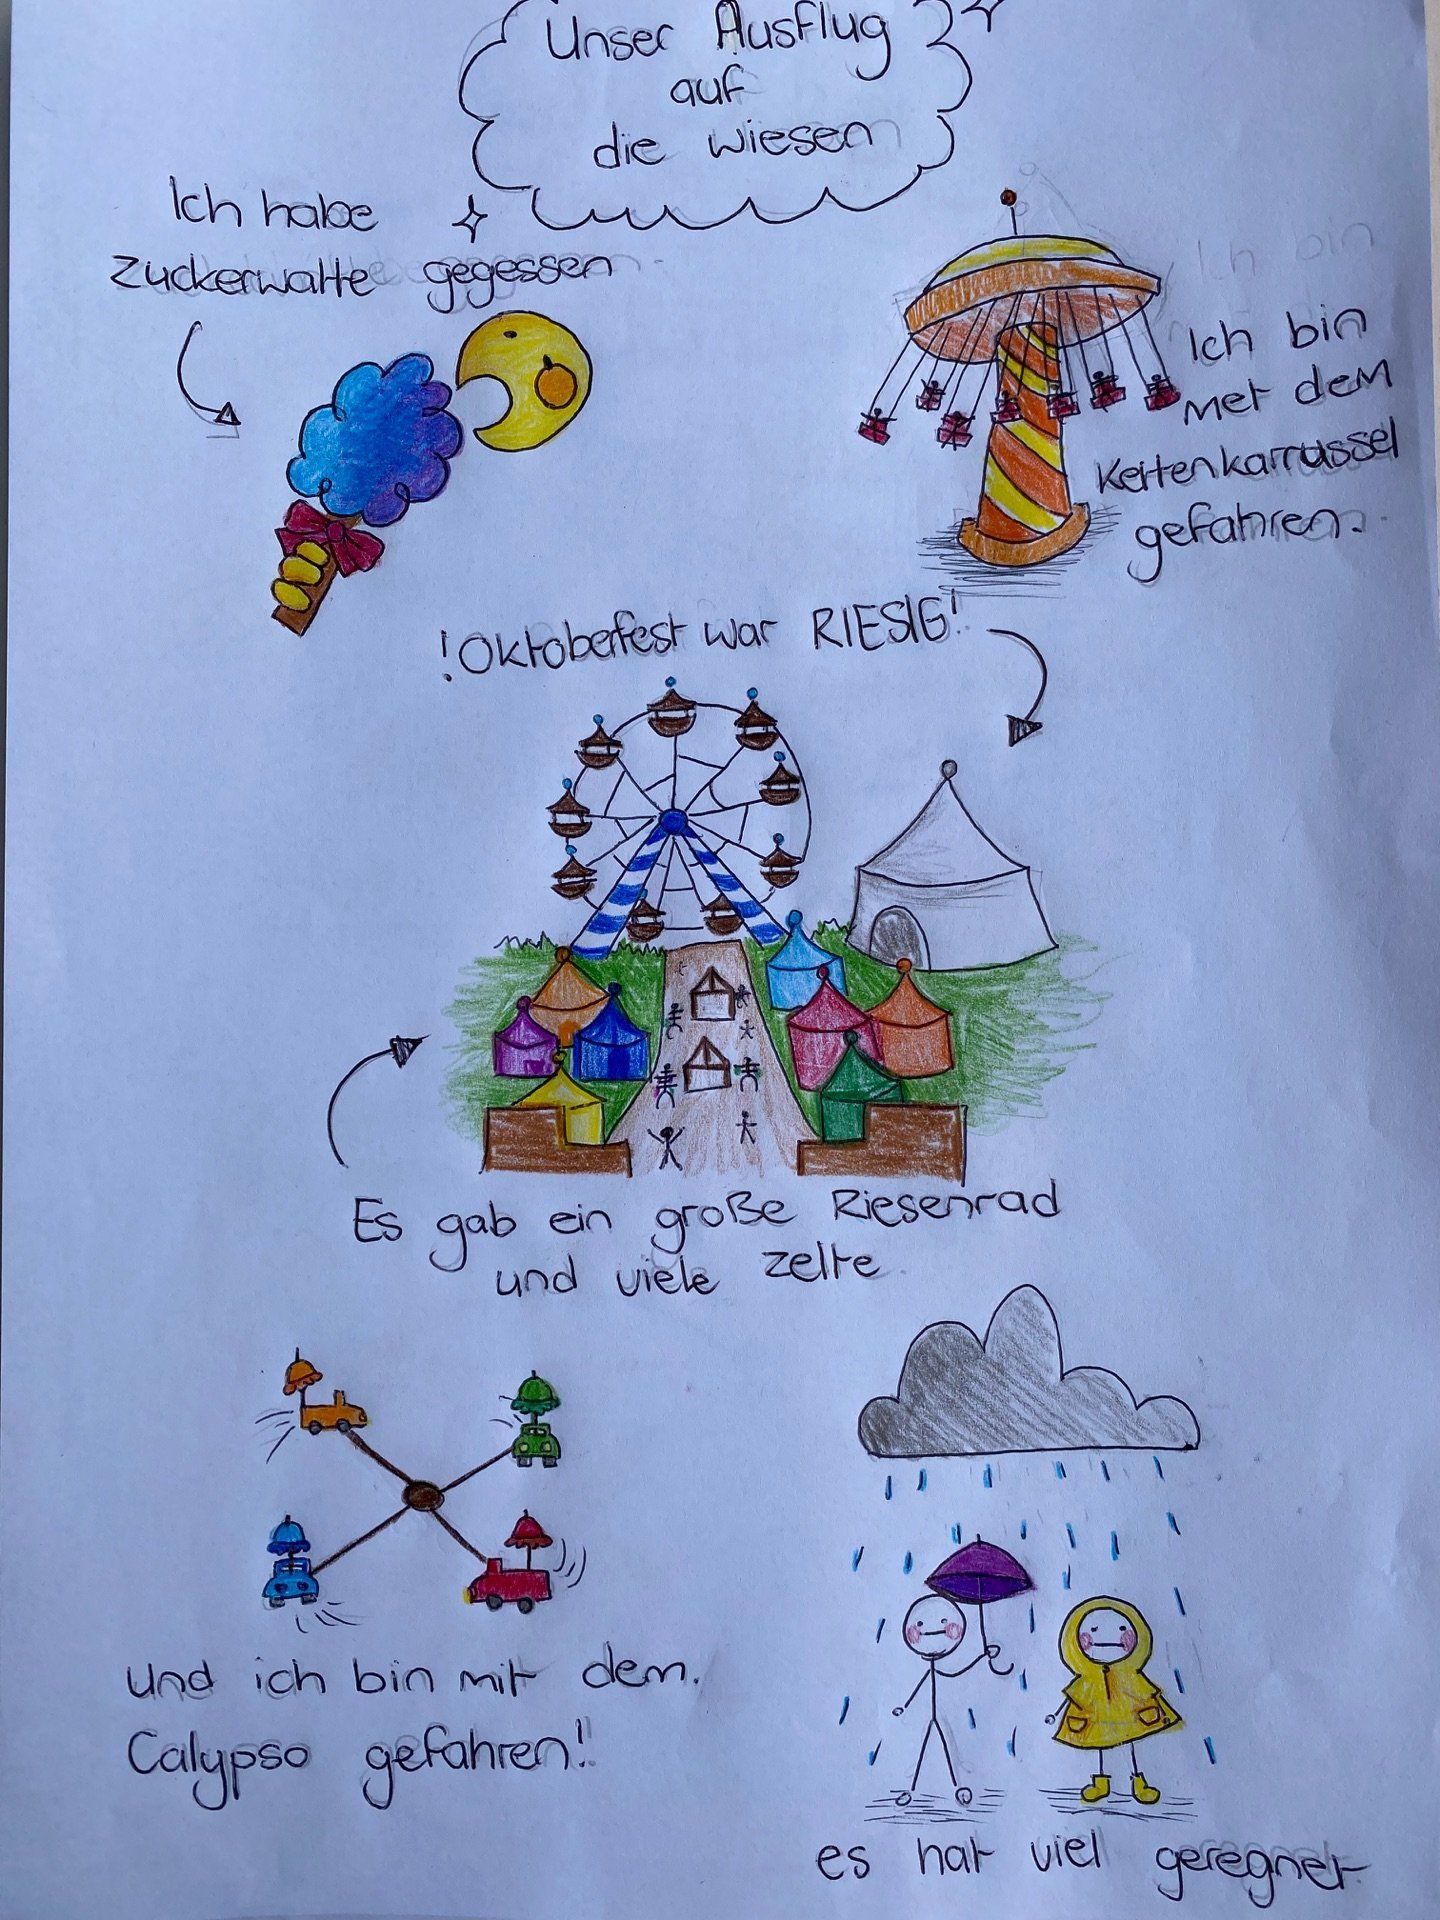 Unser Ausflug
auf
die wiesen
Ich habe
zuckerwatte gegessen
Ich bin
met dem
Kettenkarrussel
gefahren.
!Oktoberfest war RIESIG!
Es gab ein große Riesenrad
und viele zelte
und ich bin mit dem.
Calypso gefahren!
es hat viel geregnet